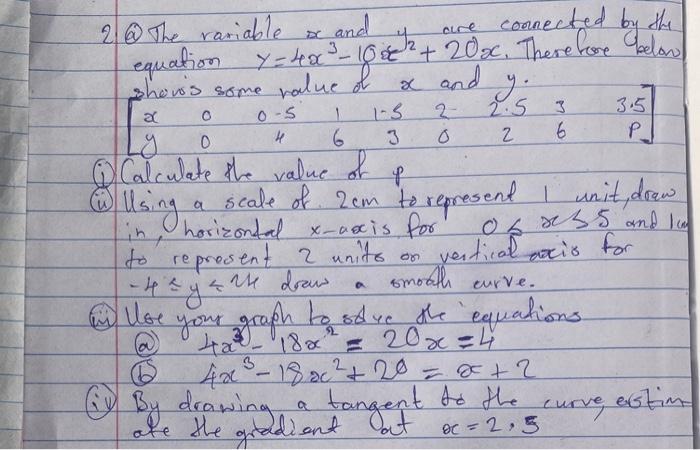 2 (a) The variable x and y are connected by the
equation y = 4x³ - 18x² + 20x. Therefore below
shows some value of x and y.
x 0 0.5 1 1.5 2 2.5 3 3.5
y 0 4 6 3 0 2 6 P
(i) Calculate the value of p
(ii) Using a scale of 2cm to represent 1 unit, draw
in, horizontal x-axis for 0 ≤ x ≤ 5 and 1cm
to represent 2 units on vertical axis for
-4 ≤ y ≤ 24 draw a smooth curve.
(iii) Use your graph to solve the equations
(a) 4x³ - 18x² = 20x = 4
(b) 4x³ - 18x² + 20 = x + 2
(iv) By drawing a tangent to the curve, estim
ate the gradient at x = 2.5